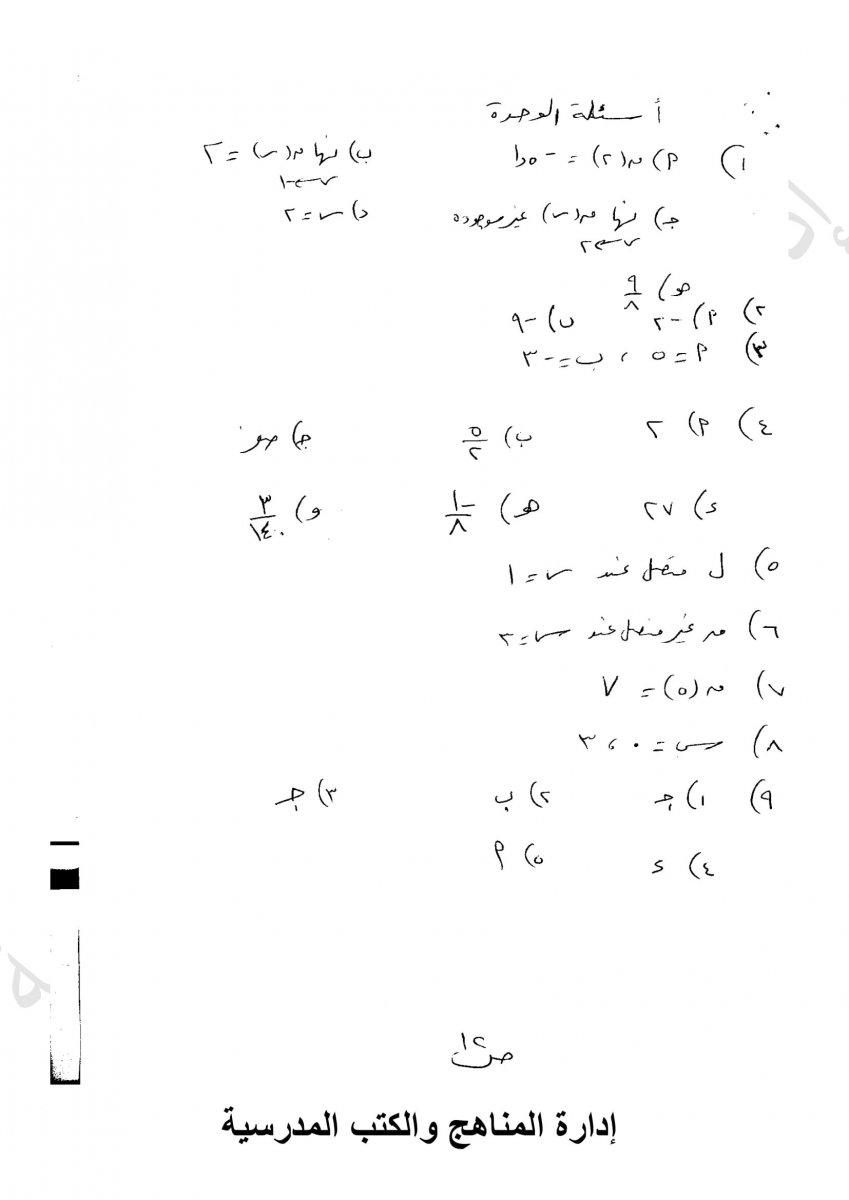 أسئلة الوحدة
١) م) ق(٢) = -١٫٥ ب) نها ق(س) = ٢
س←-١
جـ) نها ق(س) غير موجودة د) س = ٢
س←٢
هـ) ٩/٨
٢) م) -٢ ب) -٩
٣) م = ٥ ، ب = -٣
٤) م) ٢ ب) ٥/٢ جـ) صفر
ء) ٢٧ هـ) -١/٨ و) ٣/١٤٠
٥) ل متصل عند س = ١
٦) ق غير متصل عند س = ٣
٧) ق(٥) = ٧
٨) س = ٠ ، ٣
٩) ١) جـ ٢) ب ٣) جـ
٤) ء ٥) م
ص١٢
إدارة المناهج والكتب المدرسية